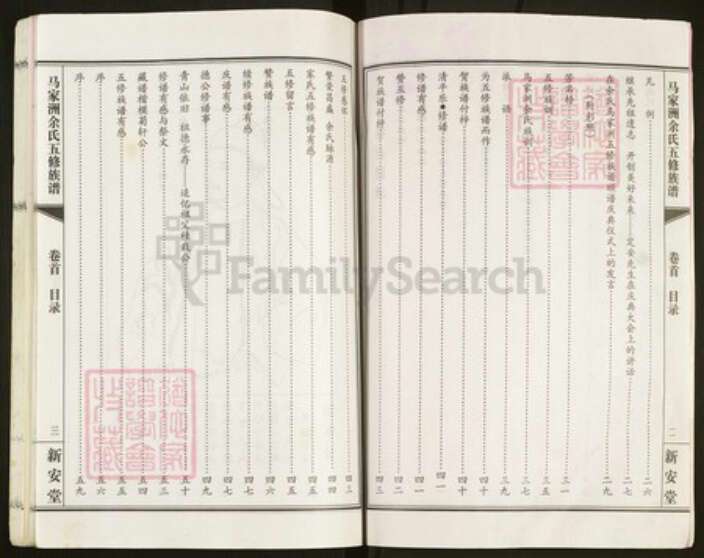 马家洲余氏五修族谱
卷首 目录
二
新安堂
凡 例 二六
继承先祖遗志 开创美好未来——定安先生在庆典大会上的讲话 二七
在余氏马家洲五修族谱颁谱庆典仪式上的发言 二九
芳名榜 三一
五修族训 三五
马家洲余氏族训 三七
派 语 三九
为五修族谱而作 四十
谱族谱付梓 四十
清平乐●修谱 四一
修谱有感 四一
赞五修 四二
贺族谱付梓 四三
五修感怀 四三
繁荣昌盛 余氏脉源 四四
家氏五修族谱有感 四五
五修留言 四五
赞族谱 四六
续修族谱有感 四七
皮谱有感 四七
德公修谱事 四九
青山依旧 祖德永存——追忆祖父 五十
修谱有感与祭文 五三
藏谱楷模菊轩公 五四
五修族谱有感 五五
序 五六
序 五九
马家洲余氏五修族谱
卷首 目录
三
新安堂
FamilySearch